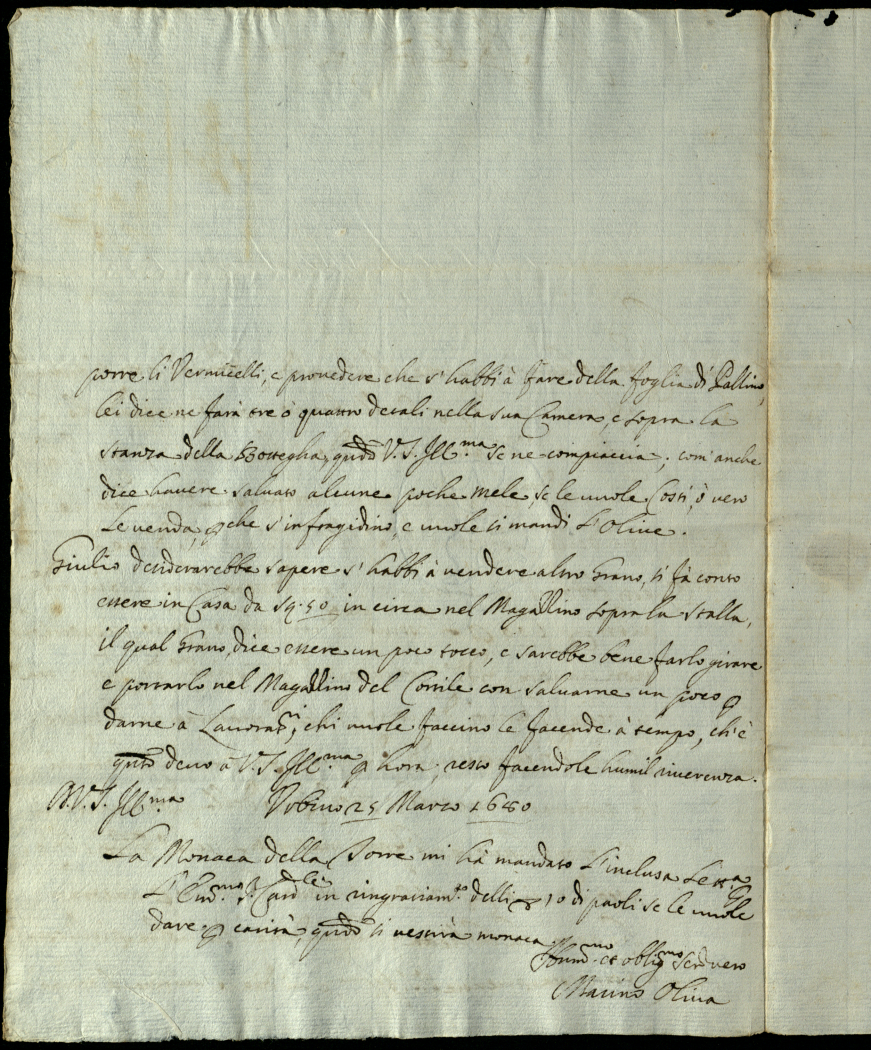 porre li Vermicelli, e provedere che s'habbi à fare della foglia di Pallino,
lei dice ne farà tre ò quattro decali nella sua Camera, e sopra la
stanza della Bottegha, qudo V.S. Ill.ma se ne compiaccia; com'anche
dice havere salvato alcune poche mele, se le vuole Costì, ò vero
le venda, pche s'infragidino, e vuole li mandi l'Olive.
Giulio desiderarebbe sapere s'habbi à vendere altro Grano, si fà conto
essere in Casa da sq. 50 in circa nel Magazzino sopra la stalla,
il qual Grano, dice essere un poco tocco, e sarebbe bene farlo girare
e portarlo nel Magazzino del Cortile con salvarne un poco p
darne à Lavorat.ri, chi vuole faccino le facende à tempo, ch'è
qnto devo à V.S. Ill.ma p hora, resto facendole humil riverenza.
D.V.S. Ill.ma Urbino 25 Marzo 1680
La Monaca della Torre mi hà mandato l'inclusa Lettra p
l'Em.mo S. Card.le in ringraziam.to delli 10 di paoli se le vuole
dare p carità, qudo si vestirà monaca.
Hum.mo et oblig.mo Serd.vero
Marino Oliva